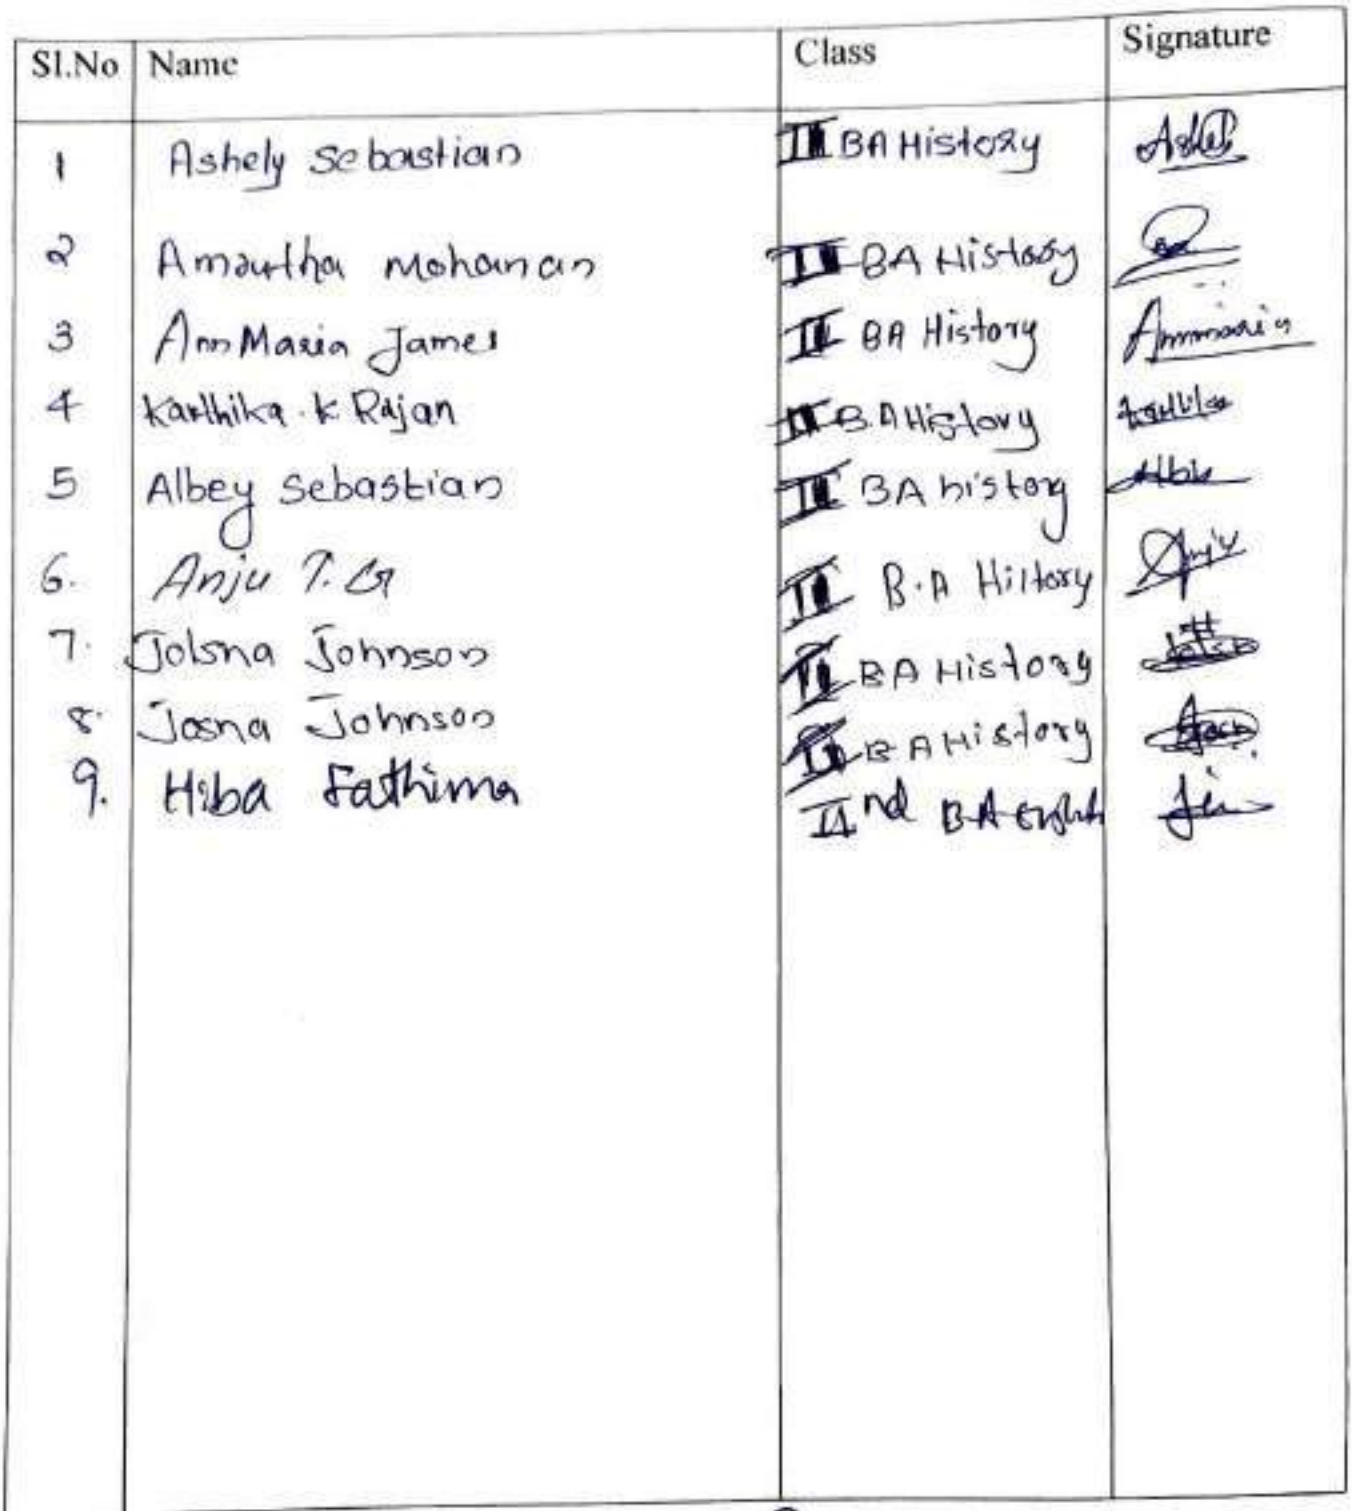 Sl.No Name Class Signature
1 Ashely Sebastian II BA History
2 Amrutha Mohanan II BA History
3 Ann Maria James II BA History Annmaria
4 Karthika. K Rajan II B.A History
5 Albey Sebastian II BA history
6. Anju T. G II B.A History Anju
7. Jolsna Johnson II BA History
8. Josna Johnson II BA History
9. Hiba Fathima II nd BA English